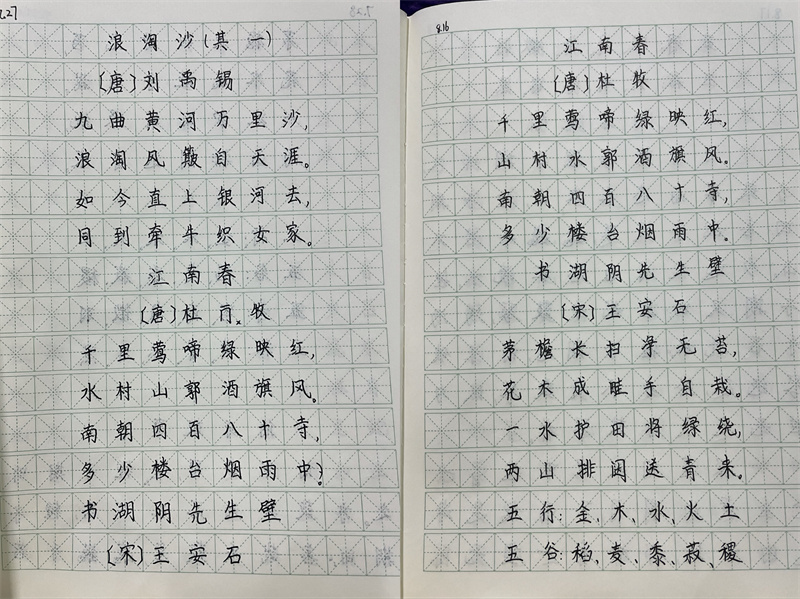 7.27
浪淘沙(其一)
[唐]刘禹锡
九曲黄河万里沙,
浪淘风簸自天涯。
如今直上银河去,
同到牵牛织女家。
江南春
[唐]杜牧
千里莺啼绿映红,
水村山郭酒旗风。
南朝四百八十寺,
多少楼台烟雨中?
书湖阴先生壁
[宋]王安石
8.16
江南春
[唐]杜牧
千里莺啼绿映红,
山村水郭酒旗风。
南朝四百八十寺,
多少楼台烟雨中。
书湖阴先生壁
[宋]王安石
茅檐长扫净无苔,
花木成畦手自栽。
一水护田将绿绕,
两山排闼送青来。
五行:金、木、水、火土
五谷:稻、麦、黍、菽、稷